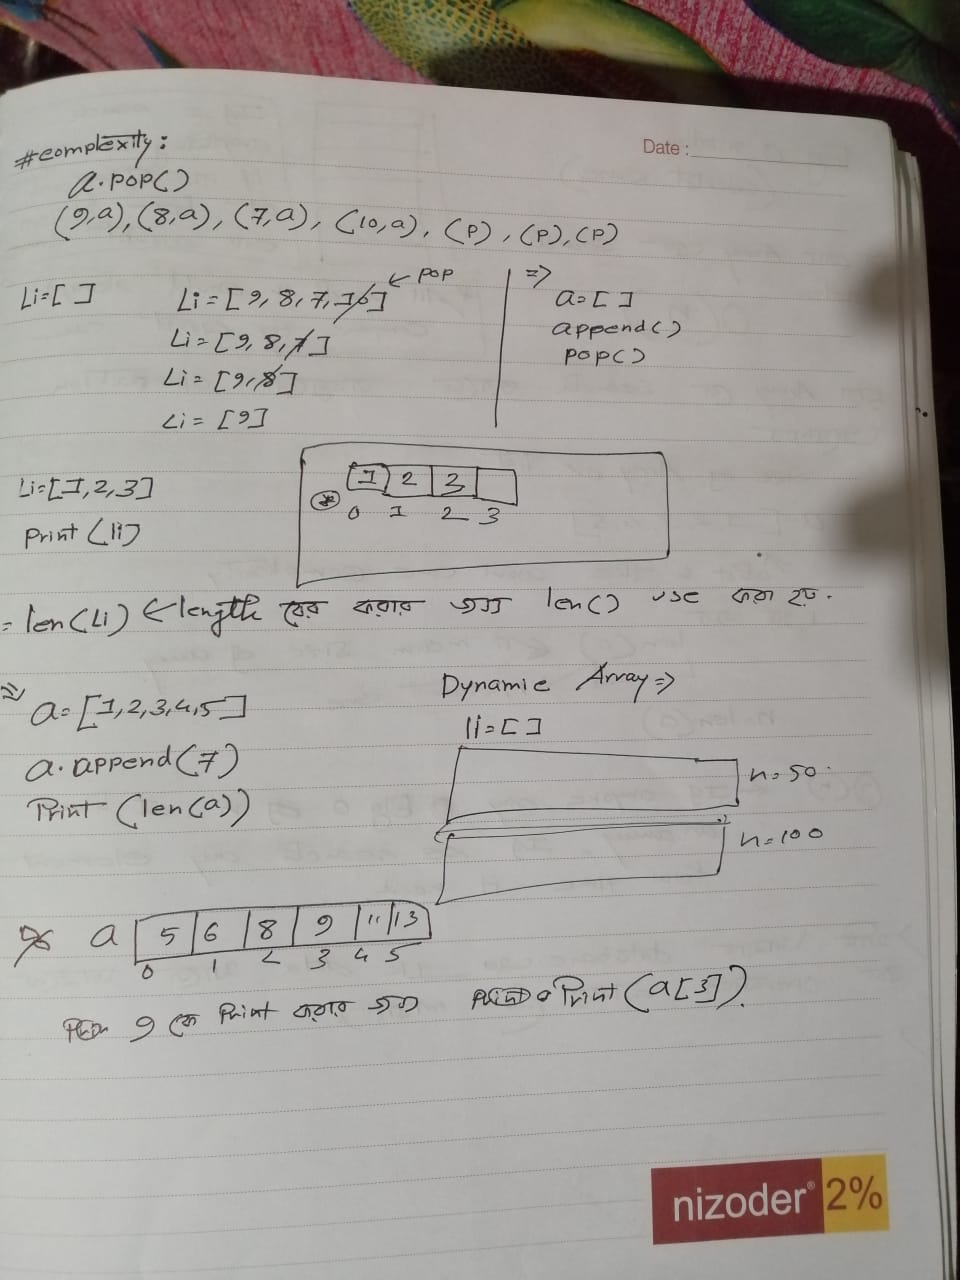 #complexity:
Date:
a.pop()
(9,a), (8,a), (7,a), (10,a), (p), (p), (p)
Li=[ ]
Li=[9,8,7,10] ← pop
Li=[9,8,7]
Li=[9,8]
Li=[9]
=>
a=[ ]
append()
pop()
Li=[1,2,3]
Print (li)
1 2 3
0 1 2 3
= len(Li) ← length বের করার জন্য len() use করা হয়.
a=[1,2,3,4,5]
a.append(7)
Print (len(a))
Dynamic Array =>
li=[ ]
n=50
n=100
a 5 6 8 9 11 13
0 1 2 3 4 5
9 কে Print করার জন্য Print (a[3]).
nizoder® 2%